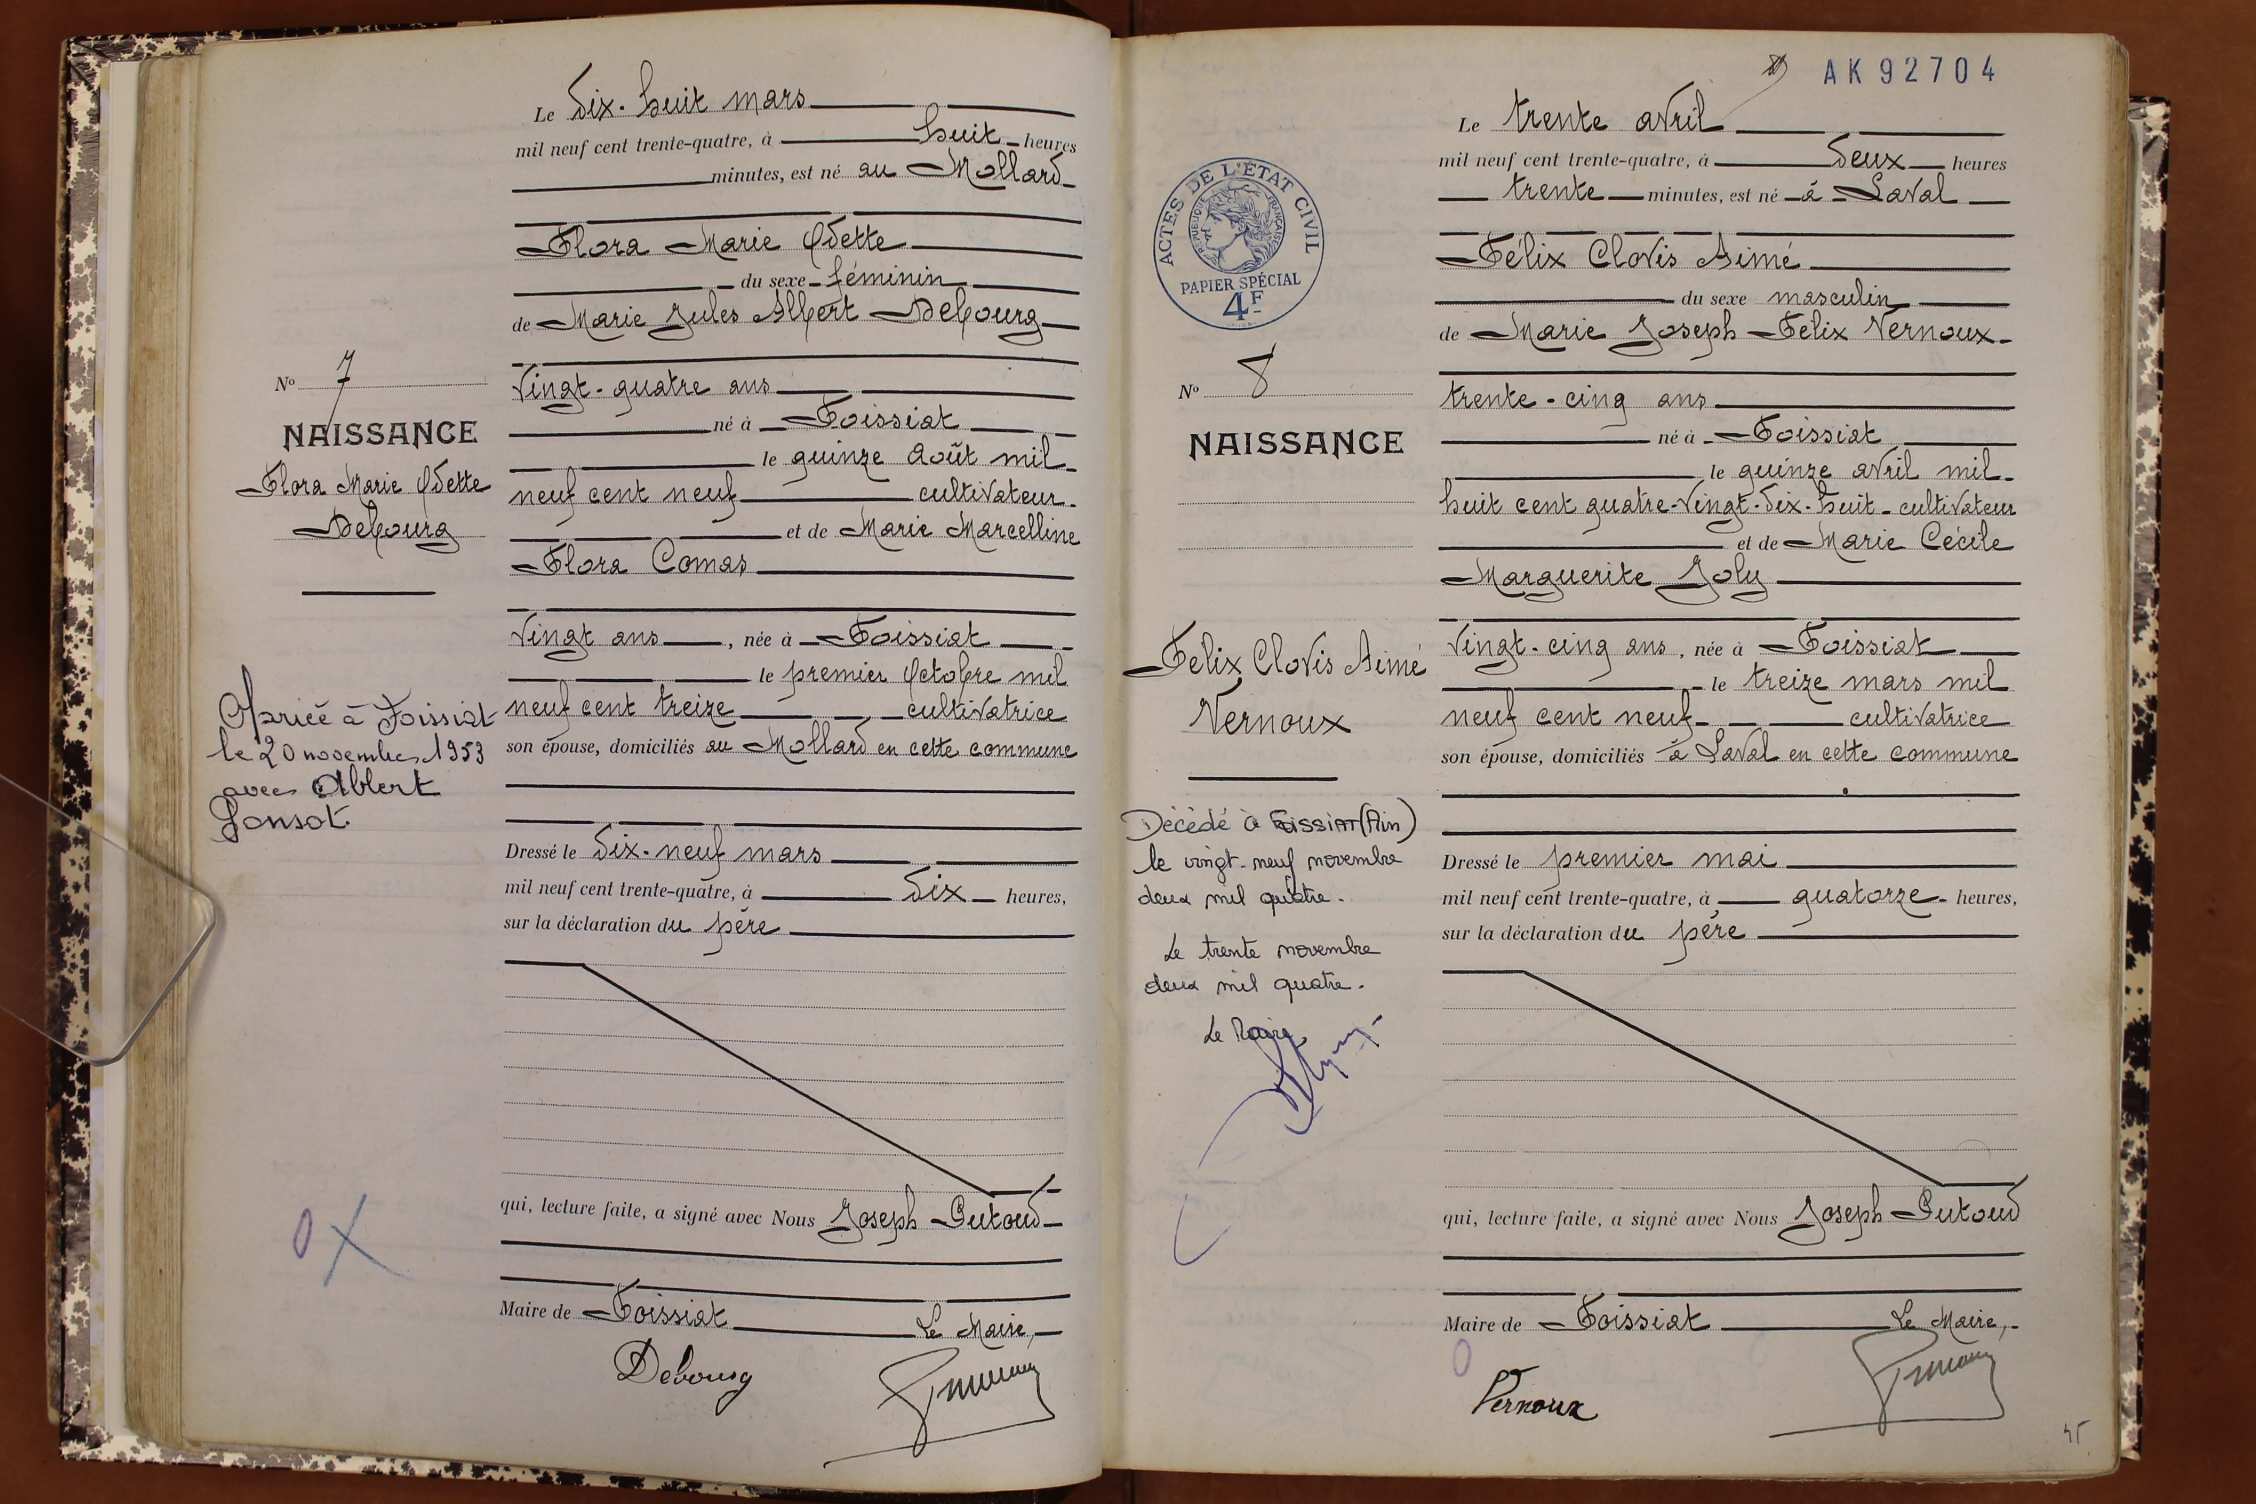 Le dix-huit mars
mil neuf cent trente-quatre, à huit heures
minutes, est né au Mollard
Flora Marie Odette
du sexe féminin
de Marie Jules Albert Debourg
N° 7
vingt-quatre ans
NAISSANCE
né à Foissiat
Flora Marie Odette
Debourg
le quinze Août mil
neuf cent neuf cultivateur
et de Marie Marcelline
Flora Comas
vingt ans, née à Foissiat
le premier Octobre mil
neuf cent treize cultivatrice
son épouse, domiciliés au Mollard en cette commune
Mariée à Foissiat
le 20 novembre 1953
avec Albert
Ponsot
Dressé le dix-neuf mars
mil neuf cent trente-quatre, à dix heures,
sur la déclaration du père
qui, lecture faite, a signé avec Nous Joseph Putoud
Maire de Foissiat Le Maire,
Debourg
AK92704
Le trente avril
mil neuf cent trente-quatre, à deux heures
trente minutes, est né à Laval
Félix Clovis Aimé
du sexe masculin
de Marie Joseph Félix Vernoux
ACTES DE L'ÉTAT CIVIL
RÉPUBLIQUE FRANÇAISE
PAPIER SPÉCIAL
4F
N° 8
trente-cinq ans
NAISSANCE
né à Foissiat
le quinze avril mil
huit cent quatre-vingt-dix-huit cultivateur
et de Marie Cécile
Marguerite Joly
vingt-cinq ans, née à Foissiat
le treize mars mil
neuf cent neuf cultivatrice
son épouse, domiciliés à Laval en cette commune
Félix Clovis Aimé
Vernoux
Décédé à FOISSIAT (Ain)
le vingt-neuf novembre
deux mil quatre.
Le trente novembre
deux mil quatre.
Le Maire
Dressé le premier mai
mil neuf cent trente-quatre, à quatorze heures,
sur la déclaration du père
qui, lecture faite, a signé avec Nous Joseph Putoud
Maire de Foissiat Le Maire,
Vernoux
45